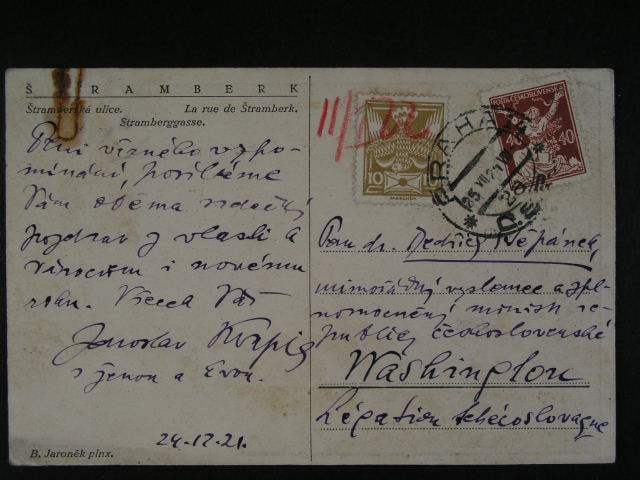 ŠTRAMBERK
Štramberská ulice. La rue de Štramberk.
Stramberggasse.
vřného vzpo-
mínání, posíláme
Vám oběma srdečný
pozdrav z vlasti k
vánocům i novému
roku. Vítá Vás
Jaroslav
s ženou a Evou.
24.12.21.
B. Jaroněk pinx.
11/I 22
10
POŠTA ČESKOSLOVENSKÁ
40 40
PRAHA
Pan dr. Bedřich Štěpánek,
mimořádný vyslanec a zpl-
nomocněný ministr re-
publiky československé
Washington
Légation tchécoslovaque